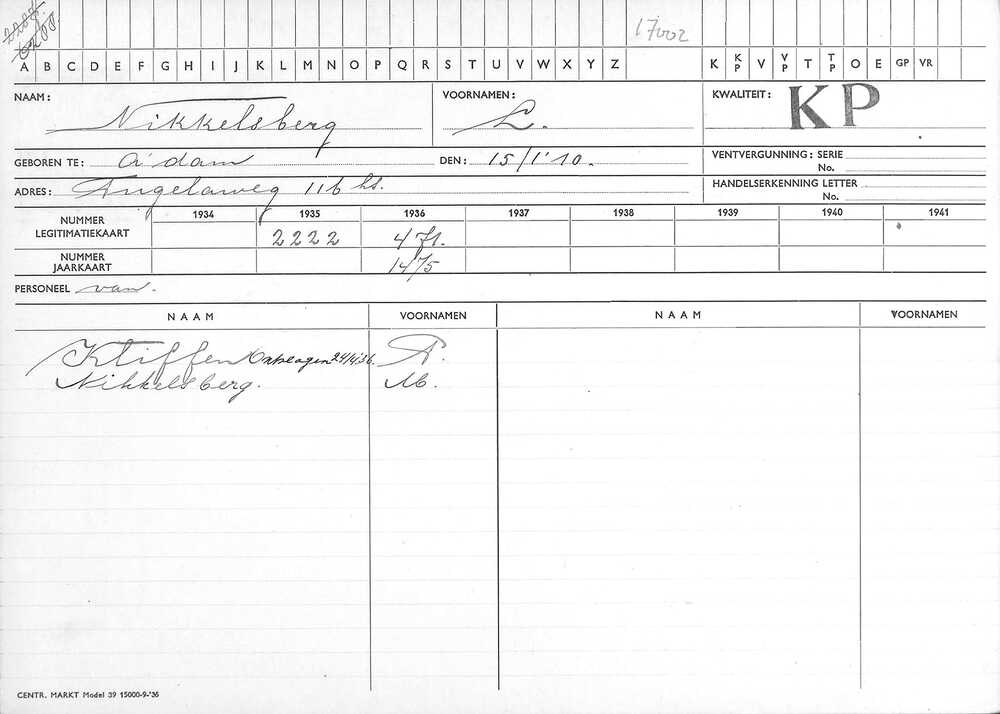 17002
A B C D E F G H I J K L M N O P Q R S T U V W X Y Z K K/P V V/P T T/P O E GP VR
NAAM: Nikkelsberg VOORNAMEN: L. KWALITEIT: KP
GEBOREN TE: A'dam DEN: 15/1'10. VENTVERGUNNING: SERIE
No.
ADRES: 116 hs. HANDELSERKENNING LETTER
No.
1934 1935 1936 1937 1938 1939 1940 1941
NUMMER LEGITIMATIEKAART 2222 471.
NUMMER JAARKAART 1475
PERSONEEL van.
NAAM VOORNAMEN NAAM VOORNAMEN
Kliffen 24/4'36. A.
Nikkelsberg. M.
CENTR. MARKT Model 39 15000-9-'36